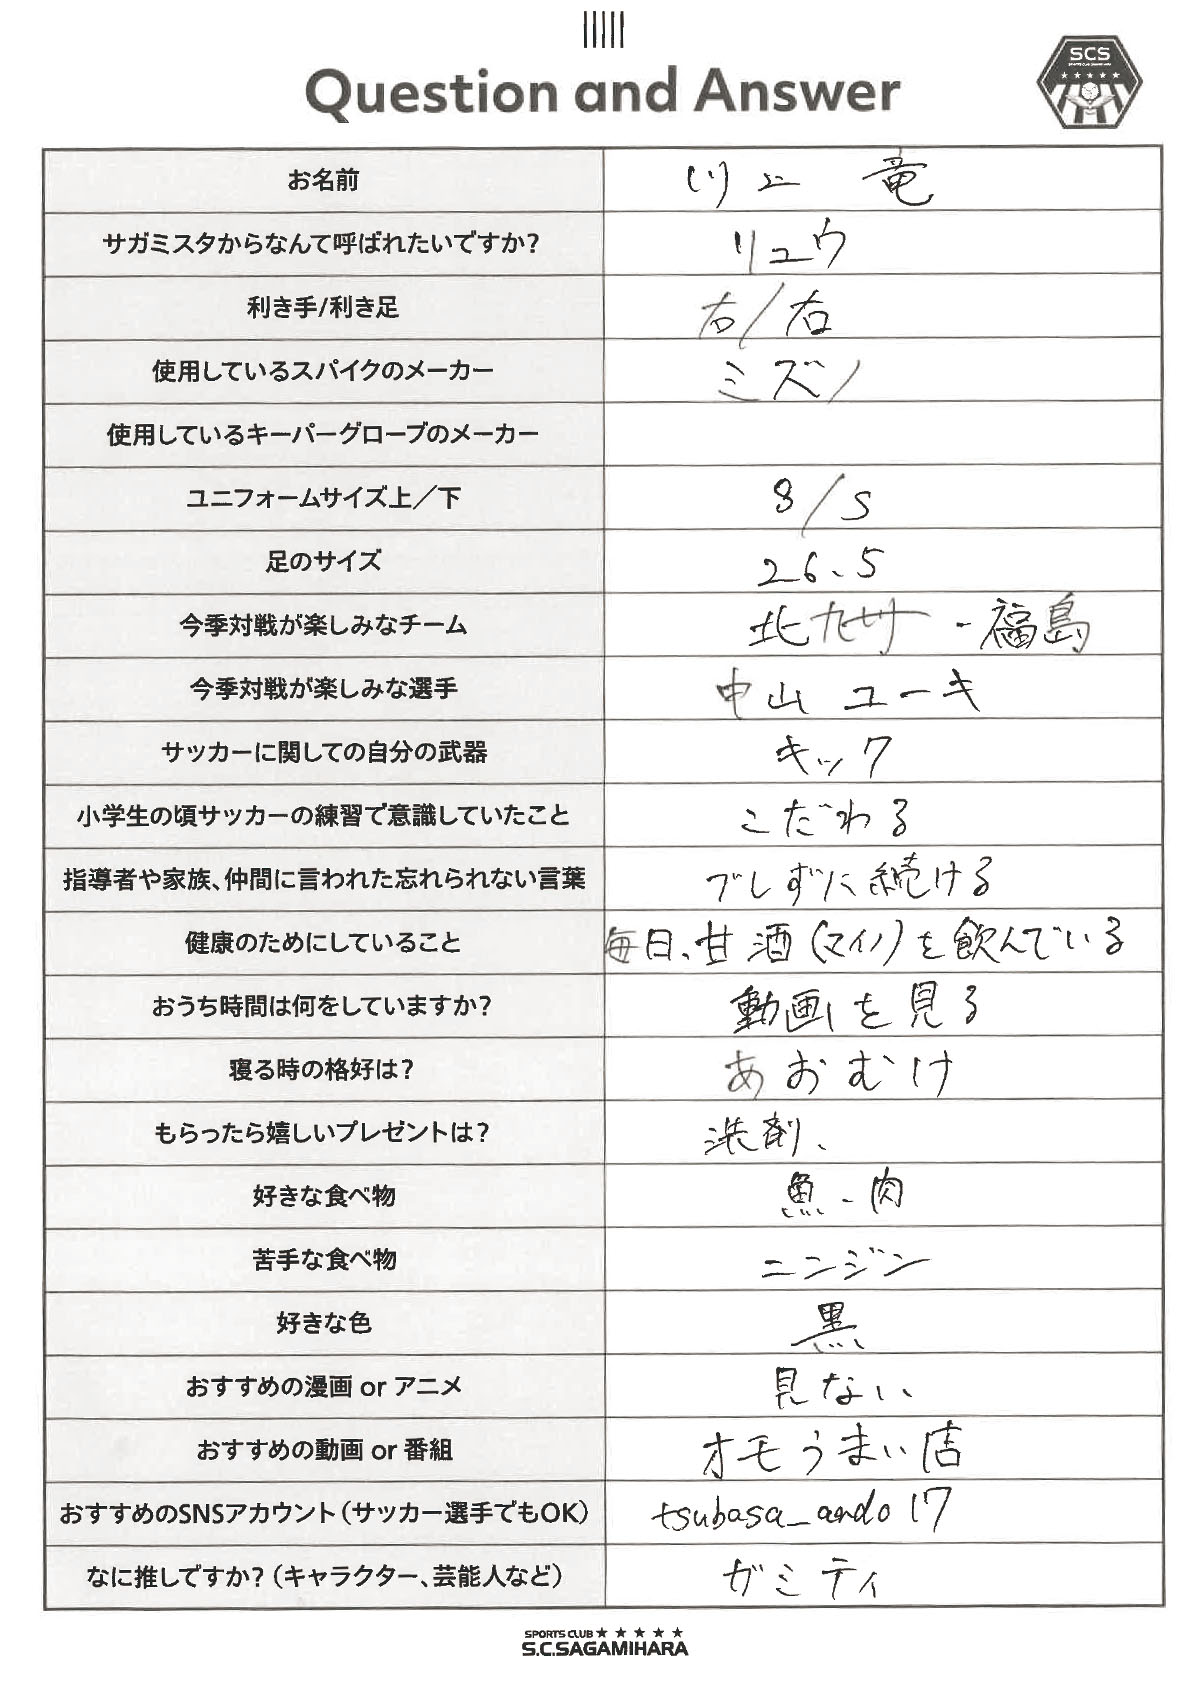 Question and Answer
SCS
お名前 川上 竜
サガミスタからなんて呼ばれたいですか? リュウ
利き手/利き足 右/右
使用しているスパイクのメーカー ミズノ
使用しているキーパーグローブのメーカー
ユニフォームサイズ上／下 S/S
足のサイズ 26.5
今季対戦が楽しみなチーム 北九州・福島
今季対戦が楽しみな選手 中山 ユーキ
サッカーに関しての自分の武器 キック
小学生の頃サッカーの練習で意識していたこと こだわる
指導者や家族、仲間に言われた忘れられない言葉 ブレずに続ける
健康のためにしていること 毎日、甘酒(マイノ)を飲んでいる
おうち時間は何をしていますか? 動画を見る
寝る時の格好は? あおむけ
もらったら嬉しいプレゼントは? 洗剤、
好きな食べ物 魚・肉
苦手な食べ物 ニンジン
好きな色 黒
おすすめの漫画 or アニメ 見ない
おすすめの動画 or 番組 オモうまい店
おすすめのSNSアカウント(サッカー選手でもOK) tsubasa_ando17
なに推しですか?(キャラクター、芸能人など) ガミティ
SPORTS CLUB ★★★★★
S.C.SAGAMIHARA